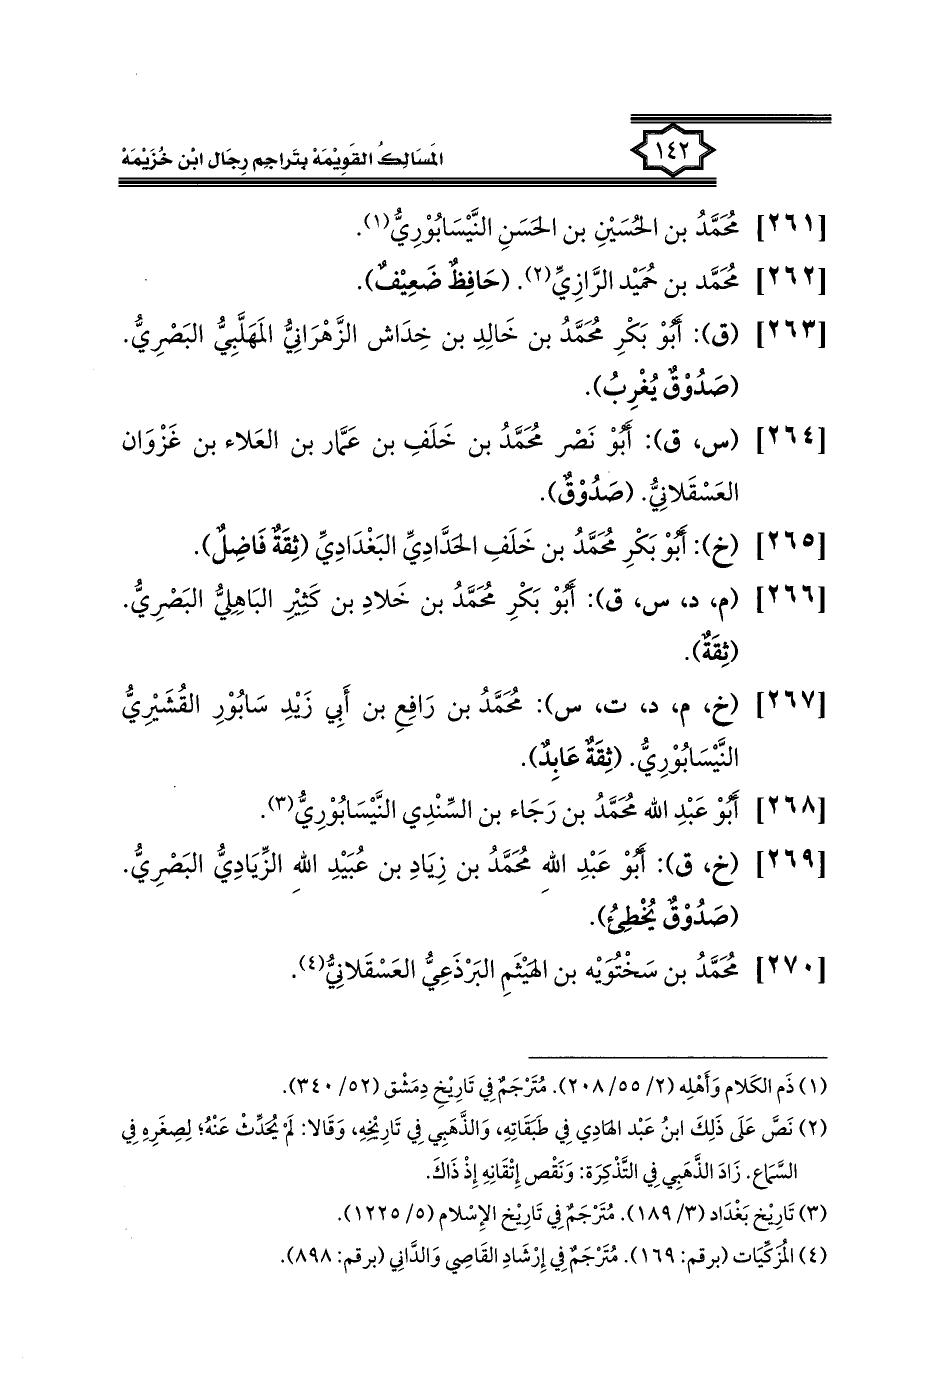 ١٤٢
المَسَالِكُ القَوِيْمَة بِتَراجِم رِجَال ابْن خُزَيْمَة
[٢٦١] مُحَمَّدُ بن الحُسَيْنِ بن الحَسَنِ النَّيْسَابُوْرِيُّ(١).
[٢٦٢] مُحَمَّد بن حُمَيْد الرَّازِيِّ(٢). (حَافِظٌ ضَعِيْفٌ).
[٢٦٣] (ق): أَبُوْ بَكْرٍ مُحَمَّدُ بن خَالِدِ بن خِدَاش الزَّهْرَانِيُّ المَهلَّبِيُّ البَصْرِيُّ.
(صَدُوْقٌ يُغْرِبُ).
[٢٦٤] (س، ق): أَبُوْ نَصْر مُحَمَّدُ بن خَلَفِ بن عَمَّار بن العَلاء بن غَزْوَان
العَسْقَلانِيُّ. (صَدُوْقٌ).
[٢٦٥] (خ): أَبُوْ بَكْرٍ مُحَمَّدُ بن خَلَفِ الحَدَّادِيِّ البَغْدَادِيِّ (ثِقَةٌ فَاضِلٌ).
[٢٦٦] (م، د، س، ق): أَبُوْ بَكْرٍ مُحَمَّدُ بن خَلادِ بن كَثِيْرِ البَاهِلِيُّ البَصْرِيُّ.
(ثِقَةٌ).
[٢٦٧] (خ، م، د، ت، س): مُحَمَّدُ بن رَافِعِ بن أَبِي زَيْدِ سَابُوْرِ القُشَيْرِيُّ
النَّيْسَابُوْرِيُّ. (ثِقَةٌ عَابِدٌ).
[٢٦٨] أَبُوْ عَبْدِ الله مُحَمَّدُ بن رَجَاء بن السِّنْدِي النَّيْسَابُوْرِيُّ(٣).
[٢٦٩] (خ، ق): أَبُوْ عَبْدِ اللهِ مُحَمَّدُ بن زِيَادِ بن عُبَيْدِ اللهِ الزِّيَادِيُّ البَصْرِيُّ.
(صَدُوْقٌ يُخْطِئُ).
[٢٧٠] مُحَمَّدُ بن سَخْتُوَيْه بن الهَيْثَمِ البَرْذَعِيُّ العَسْقَلانِيُّ(٤).
(١) ذَم الكَلام وَأَهْلِه (٢/ ٥٥/ ٢٠٨). مُتَرْجَمٌ فِي تَارِيْخِ دِمَشْق (٥٢/ ٣٤٠).
(٢) نَصَّ عَلَى ذَلِكَ ابنُ عَبْد الهَادِي فِي طَبَقَاتِه، وَالذَّهَبِي فِي تَارِيْخِه، وَقَالا: لَمْ يُحَدِّثْ عَنْهُ؛ لِصِغَرِهِ فِي
السَّمَاع. زَادَ الذَّهَبِي فِي التَّذْكِرَة: وَنَقْص إِتْقَانِهِ إِذْ ذَاكَ.
(٣) تَارِيْخ بَغْدَاد (٣/ ١٨٩). مُتَرْجَمٌ فِي تَارِيْخ الإِسْلام (٥/ ١٢٢٥).
(٤) المُزَكِّيَات (برقم: ١٦٩). مُتَرْجَمٌ فِي إِرْشَادِ القَاصِي وَالدَّانِي (برقم: ٨٩٨).